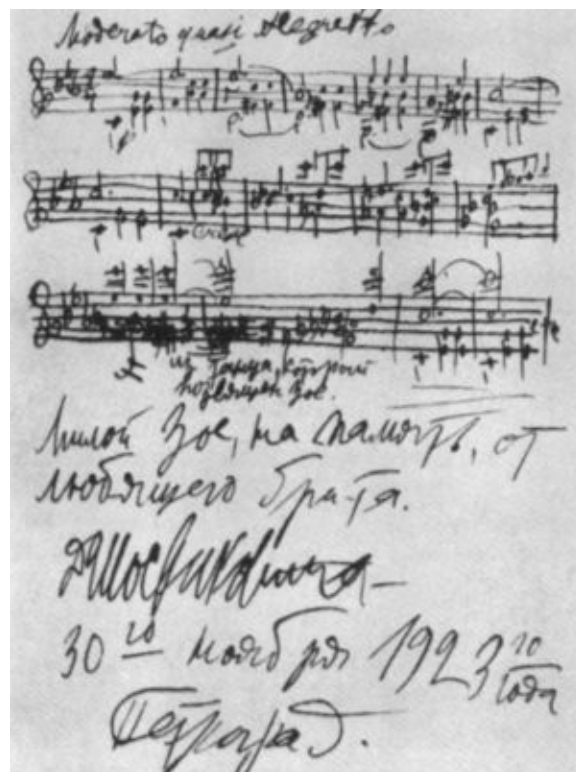 Moderato quasi Allegretto
из танца, который
посвящен Зое.
Милой Зое, на память, от
любящего брата.
ДШостаковича
30го ноября 1923го года
Петроград.